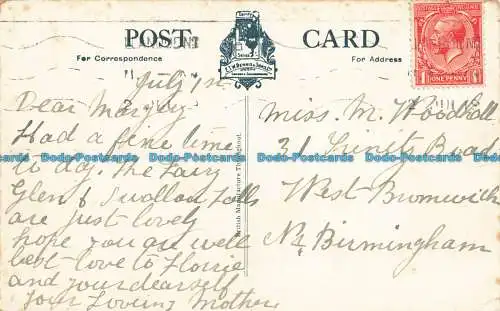 POST CARD
For Correspondence
For Address
ONE PENNY
British Manufacture Throughout.
July 1st
Dear Margery
Had a fine time
to day. The Fairy
Glen & Swallow Falls
are just lovely
hope you are well
best love to Florrie
and yourdearself
Your Loving Mother
Miss. M. Woodhall
31 Trinity Road
West Bromwich
Nr Birmingham
Dodo-Postcards Dodo-Postcards Dodo-Postcards Dodo-Postcards Dodo-Postcards